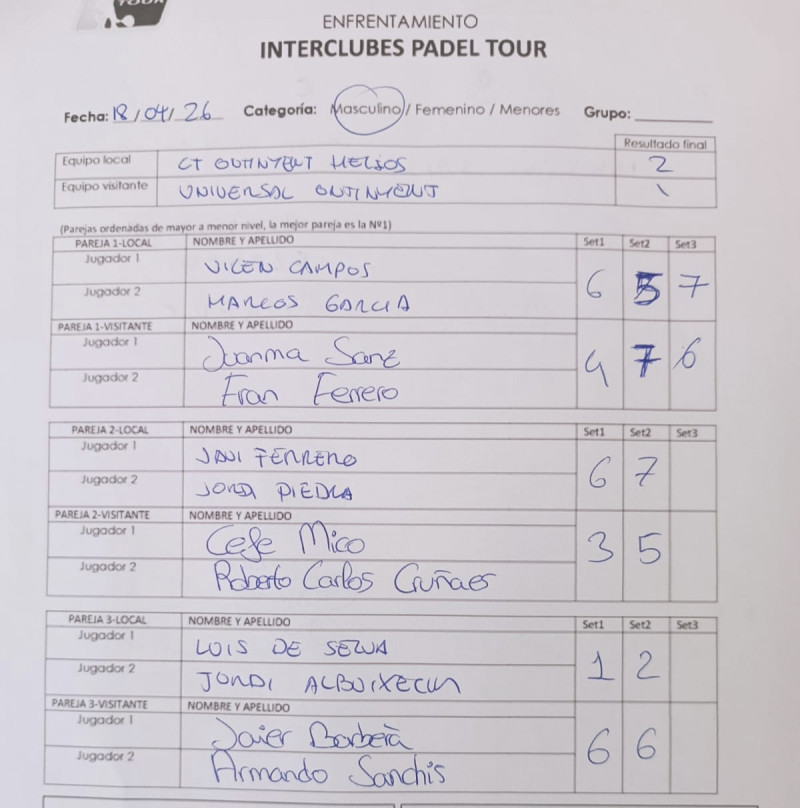 TOUR
ENFRENTAMIENTO
INTERCLUBES PADEL TOUR
Fecha: 18/04/26 Categoría: Masculino / Femenino / Menores Grupo:
Resultado final
Equipo local CT ONTINYENT HELIOS 2
Equipo visitante UNIVERSAL ONTINYENT 1
(Parejas ordenadas de mayor a menor nivel, la mejor pareja es la Nº1)
PAREJA 1-LOCAL NOMBRE Y APELLIDO Set1 Set2 Set3
Jugador 1 VICEN CAMPOS
6 5 7
Jugador 2 MARCOS GARCIA
PAREJA 1-VISITANTE NOMBRE Y APELLIDO
Jugador 1 Juanma Sanz
4 7 6
Jugador 2 Fran Ferrero
PAREJA 2-LOCAL NOMBRE Y APELLIDO Set1 Set2 Set3
Jugador 1 JAVI FERRERO
6 7
Jugador 2 JORDI PIEDRA
PAREJA 2-VISITANTE NOMBRE Y APELLIDO
Jugador 1 Cefe Mico
3 5
Jugador 2 Roberto Carlos
PAREJA 3-LOCAL NOMBRE Y APELLIDO Set1 Set2 Set3
Jugador 1 LUIS DE SELVA
1 2
Jugador 2 JORDI ALBUIXECH
PAREJA 3-VISITANTE NOMBRE Y APELLIDO
Jugador 1 Javier Barberà
6 6
Jugador 2 Armando Sanchis